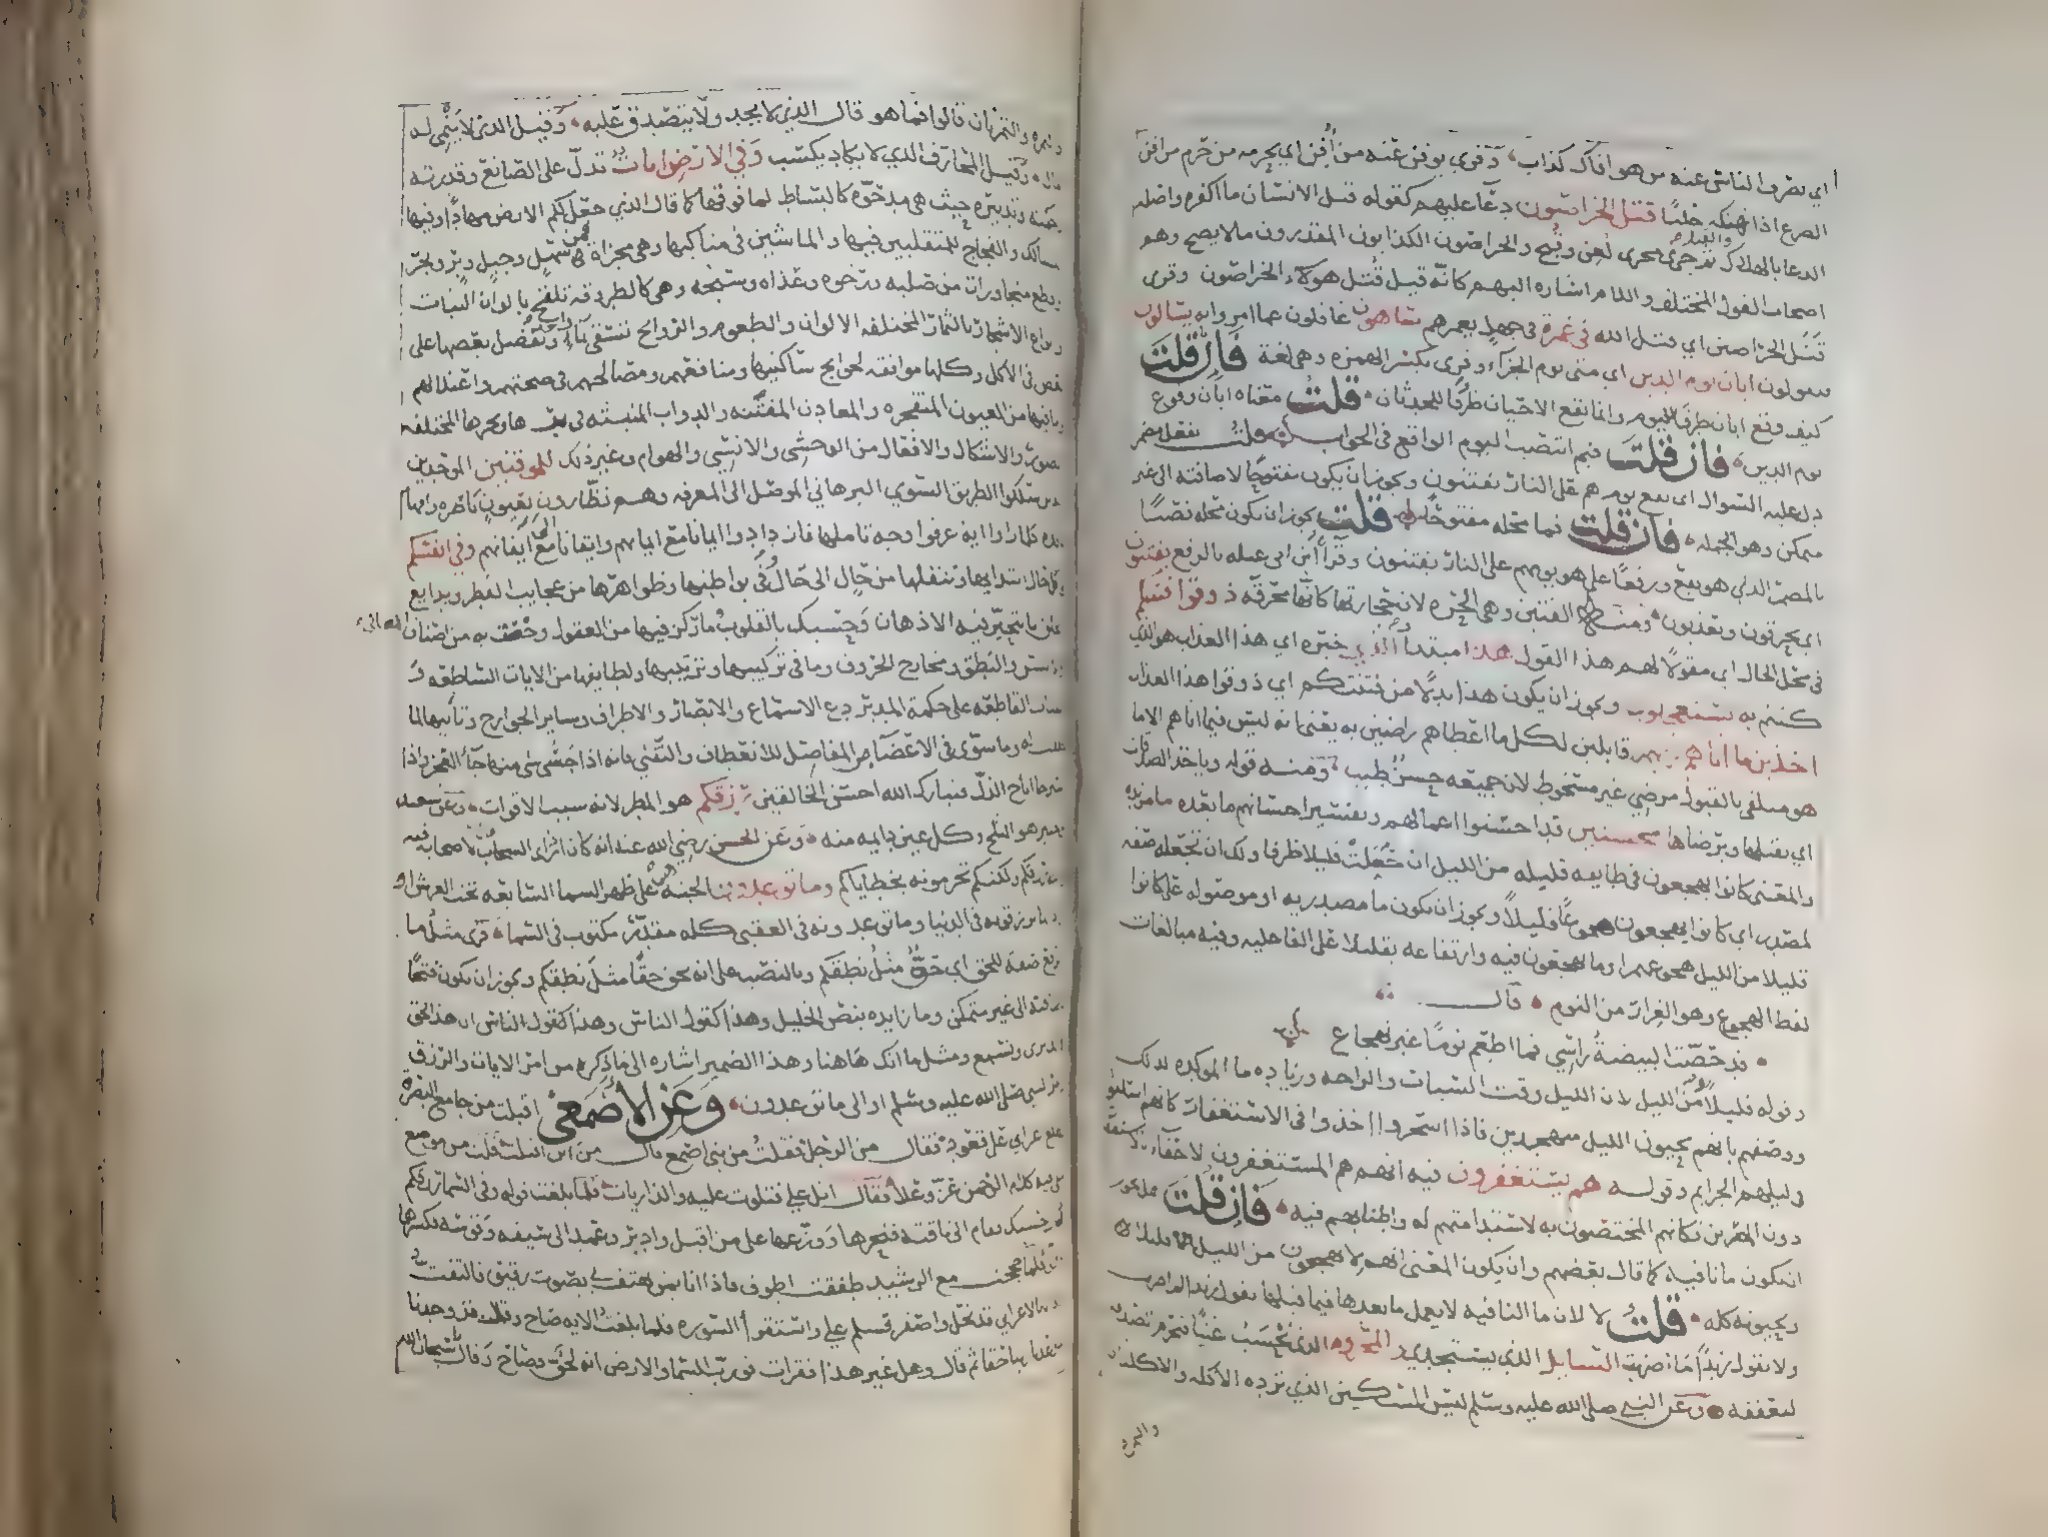 اي يصرف الناس عنه من هو افاك كذاب وقرى يوفن عنه من أُفن اي يحرمه من حرم من افن
الضرع اذا نهكه حلبًا قتل الخراصون دعآ عليهم كقوله قتل الانسان ما اكفره واصله
الدعا بالهلاك ثم جرى مجرى لعن وقبح والخراصون الكذابون المقدرون ما لا يصح وهم
اصحاب القول المختلف واللام اشاره اليهم كانه قيل قُتل هولآء الخراصون وقرى
قتل الخراصين اي قتل الله في غمرة في جهل يغمرهم ساهون غافلون عما امروا به يسالون
فيقولون ايان يوم الدين اي متى يوم الجزآء وقرى بكسر الهمزه وهي لغة فَاِن قُلتَ
كيف وقع ايان ظرفا لليوم وانما تقع الاحيان ظرفًا للحدثان قلتُ معناه ايان وقوع
يوم الدين فان قلتَ فبم انتصب اليوم الواقع في الجواب قلتُ بفعل مضمر
دل عليه السوال اي يقع يوم هم على النار يفتنون ويجوز ان يكون مفتوحًا لاضافته الى غير
متمكن وهو الجمله فان قلت فما محله مفتوحًا قلتُ يجوز ان يكون محله نصبًا
بالمضمر الذي هو يقع ورفعًا على هو يوم هم على النار يفتنون وقرأ ابن ابي عبله بالرفع يفتنون
اي يحرقون ويعذبون ومنه الفتين وهي الحره لان حجارتها كانها محرقه ذوقوا فتنتكم
في محل الحال اي مقولًا لهم هذا القول هذا مبتدأ والذي خبره اي هذا العذاب هو الذي
كنتم به تستعجلون ويجوز ان يكون هذا بدلًا من فتنتكم اي ذوقوا هذا العذاب
اخذين ما اتاهم ربهم قابلين لكل ما اعطاهم راضين به يعني انه ليس فيما اتاهم الا ما
هو متلقى بالقبول مرضي غير مسخوط لان جميعه حسن طيب ومنه قوله وياخذ الصدقات
اي يقبلها ويرضاها محسنين قد احسنوا اعمالهم وتفسير احسانهم ما بعده ما مزيده
والمعنى كانوا يهجعون في طايفه قليله من الليل ان جعلتَ قليلا ظرفا ولك ان تجعله صفه
لمصدر اي كانوا يهجعون هجوعًا قليلًا ويجوز ان تكون ما مصدريه او موصوله على كانوا
قليلا من الليل هجوعهم او ما يهجعون فيه وارتفاعه بقليلا على الفاعليه وفيه مبالغات
لفظ الهجوع وهو الغرار من النوم قال
قد حصّت البيضةُ راسي فما اطعم نومًا غير تهجاع
وقوله قليلًا من الليل لان الليل وقت السبات والراحه وزياده ما الموكده لذلك
ووصفهم بانهم يحيون الليل متهجدين فاذا اسحروا اخذوا في الاستغفار كانهم اسلفوا
في ليلهم الجرايم وقوله هم يستغفرون فيه انهم هم المستغفرون الاحقآء
دون المصرين فكانهم المختصون به لاستدامتهم له واطنابهم فيه فَاِن قُلتَ هل يجوز
ان تكون ما نافيه كما قال بعضهم وان يكون المعنى انهم لا يهجعون من الليل قليلا
ويحيونه كله قلتُ لا لان ما النافيه لا يعمل ما بعدها فيما قبلها تقول زيدا لم اضرب
ولا تقول زيدًا ما ضربت السايل الذي يستجدي والمحروم الذي يُحسب غنيًا فيحرم الصدقه
لتعففه وعن النبي صلى الله عليه وسلم ليس المسكين الذي ترده الاكله والاكلتان
والتمره
والتمرتان قالوا فما هو قال الذي لا يجد ولا يتصدق عليه وقيل الذي لا ينمى له
مال وقيل المحارف الذي لا يكاد يكسب وفي الارض ايات تدل على الصانع وقدرته
وحكمته وتدبيره حيث هي مدحوّه كالبساط لما فوقها كما قال الذي جعل لكم الارض مهادًا وفيها
المسالك والفجاج للمتقلبين فيها والماشين في مناكبها وهي مجزاة فمن سهل وجبل وبر وبحر
وقطع متجاورات من صلبه ورخوه وعذاه وسبخه وهي كالطروقه تلقح بالوان النبات
وانواع الاشجار بالثمار المختلفه الالوان والطعوم والروايح تسقى بمآءٍ واحد ونفضل بعضها على
بعض في الاكل وكلها موافقه لحوايج ساكنيها ومنافعهم ومصالحهم في صحتهم واعتلالهم
وما فيها من العيون المتفجره والمعادن المفتنه والدواب المنبثه في برها وبحرها المختلفه
الصور والاشكال والافعال من الوحشي والانسي والهوام وغير ذلك للموقنين الموحدين
الذين سلكوا الطريق السوي البرهاني الموصل الى المعرفه وهم نظارون بعيون باصره وافهام
نافذه كلما راوا ايه عرفوا وجه تاملها فازدادوا ايمانا مع ايمانهم وايقانا الى ايقانهم وفي انفسكم
في حال ابتدايها وتنقلها من حال الى حال وفي بواطنها وظواهرها من عجايب الفطر وبدايع
الخلق ما تتحير فيه الاذهان وحسبك بالقلوب وما ركز فيها من العقول وخصت به من اصناف المعاني
وبالالسن والنطق ومخارج الحروف وما في تركيبها وترتيبها ولطايفها من الايات الساطعه و
البينات القاطعه على حكمة المدبر دع الاسماع والابصار والاطراف وساير الجوارح وتاتيها لما
خلقت له وما سوّى في الاعضآء من المفاصل للانعطاف والتثني فانه اذا جسى شى منها جآء العجز واذا
استرخا اناخ الذل فتبارك الله احسن الخالقين رزقكم هو المطر لانه سبب الاقوات وعن سعيد
بن جبير هو الثلج وكل عين دايمه منه وعن الحسن رضي الله عنه انه كان اذا راى السحاب قال لاصحابه فيه
والله رزقكم ولكنكم تحرمونه بخطاياكم وما توعدون الجنه هي على ظهر السما السابعه تحت العرش او
اراد ان ما ترزقونه في الدنيا وما توعدونه في العقبى كله مقدر مكتوب في السما قرى مثلُ ما
بالرفع صفه للحق اي حقٌ مثلُ نطقكم وبالنصب على انه لحق حقًا مثلَ نطقكم ويجوز ان يكون فتحًا
لاضافته الى غير متمكن وما زايده بنص الخليل وهذا كقول الناس وهذا كقول الناس ان هذا لحق
كما انك ترى وتسمع ومثل ما انك هاهنا وهذا الضمير اشاره الى ما ذكره من امر الايات والرزق
وامر النبي صلى الله عليه وسلم او الى ما توعدون وَعَنِ الأَصمَعي اقبلت من جامع البصرة
فطلع اعرابي على قعود فقال من الرجل فقلتُ من بني اصمع قال من اين اقبلت قلت من موضع
يتلى فيه كلام الرحمن عز وعلا فقال اتل علي فتلوت عليه والذاريات فلما بلغت قوله وفي السما رزقكم
قال حسبك فقام الى ناقته فنحرها ووزعها على من اقبل وادبر وعمد الى سيفه وقوسه فكسرها
وولى فلما حججت مع الرشيد طفقت اطوف فاذا انا بمن يهتف بي بصوت رقيق فالتفت
فاذا انا بالاعرابي قد نحل واصفر فسلم علي واستقرأ السوره فلما بلغتُ الايه صاح وقال قد وجدنا
ما وعدنا ربنا حقا ثم قال وهل غير هذا فقرات فورب السما والارض انه لحق فصاح وقال سبحان الله